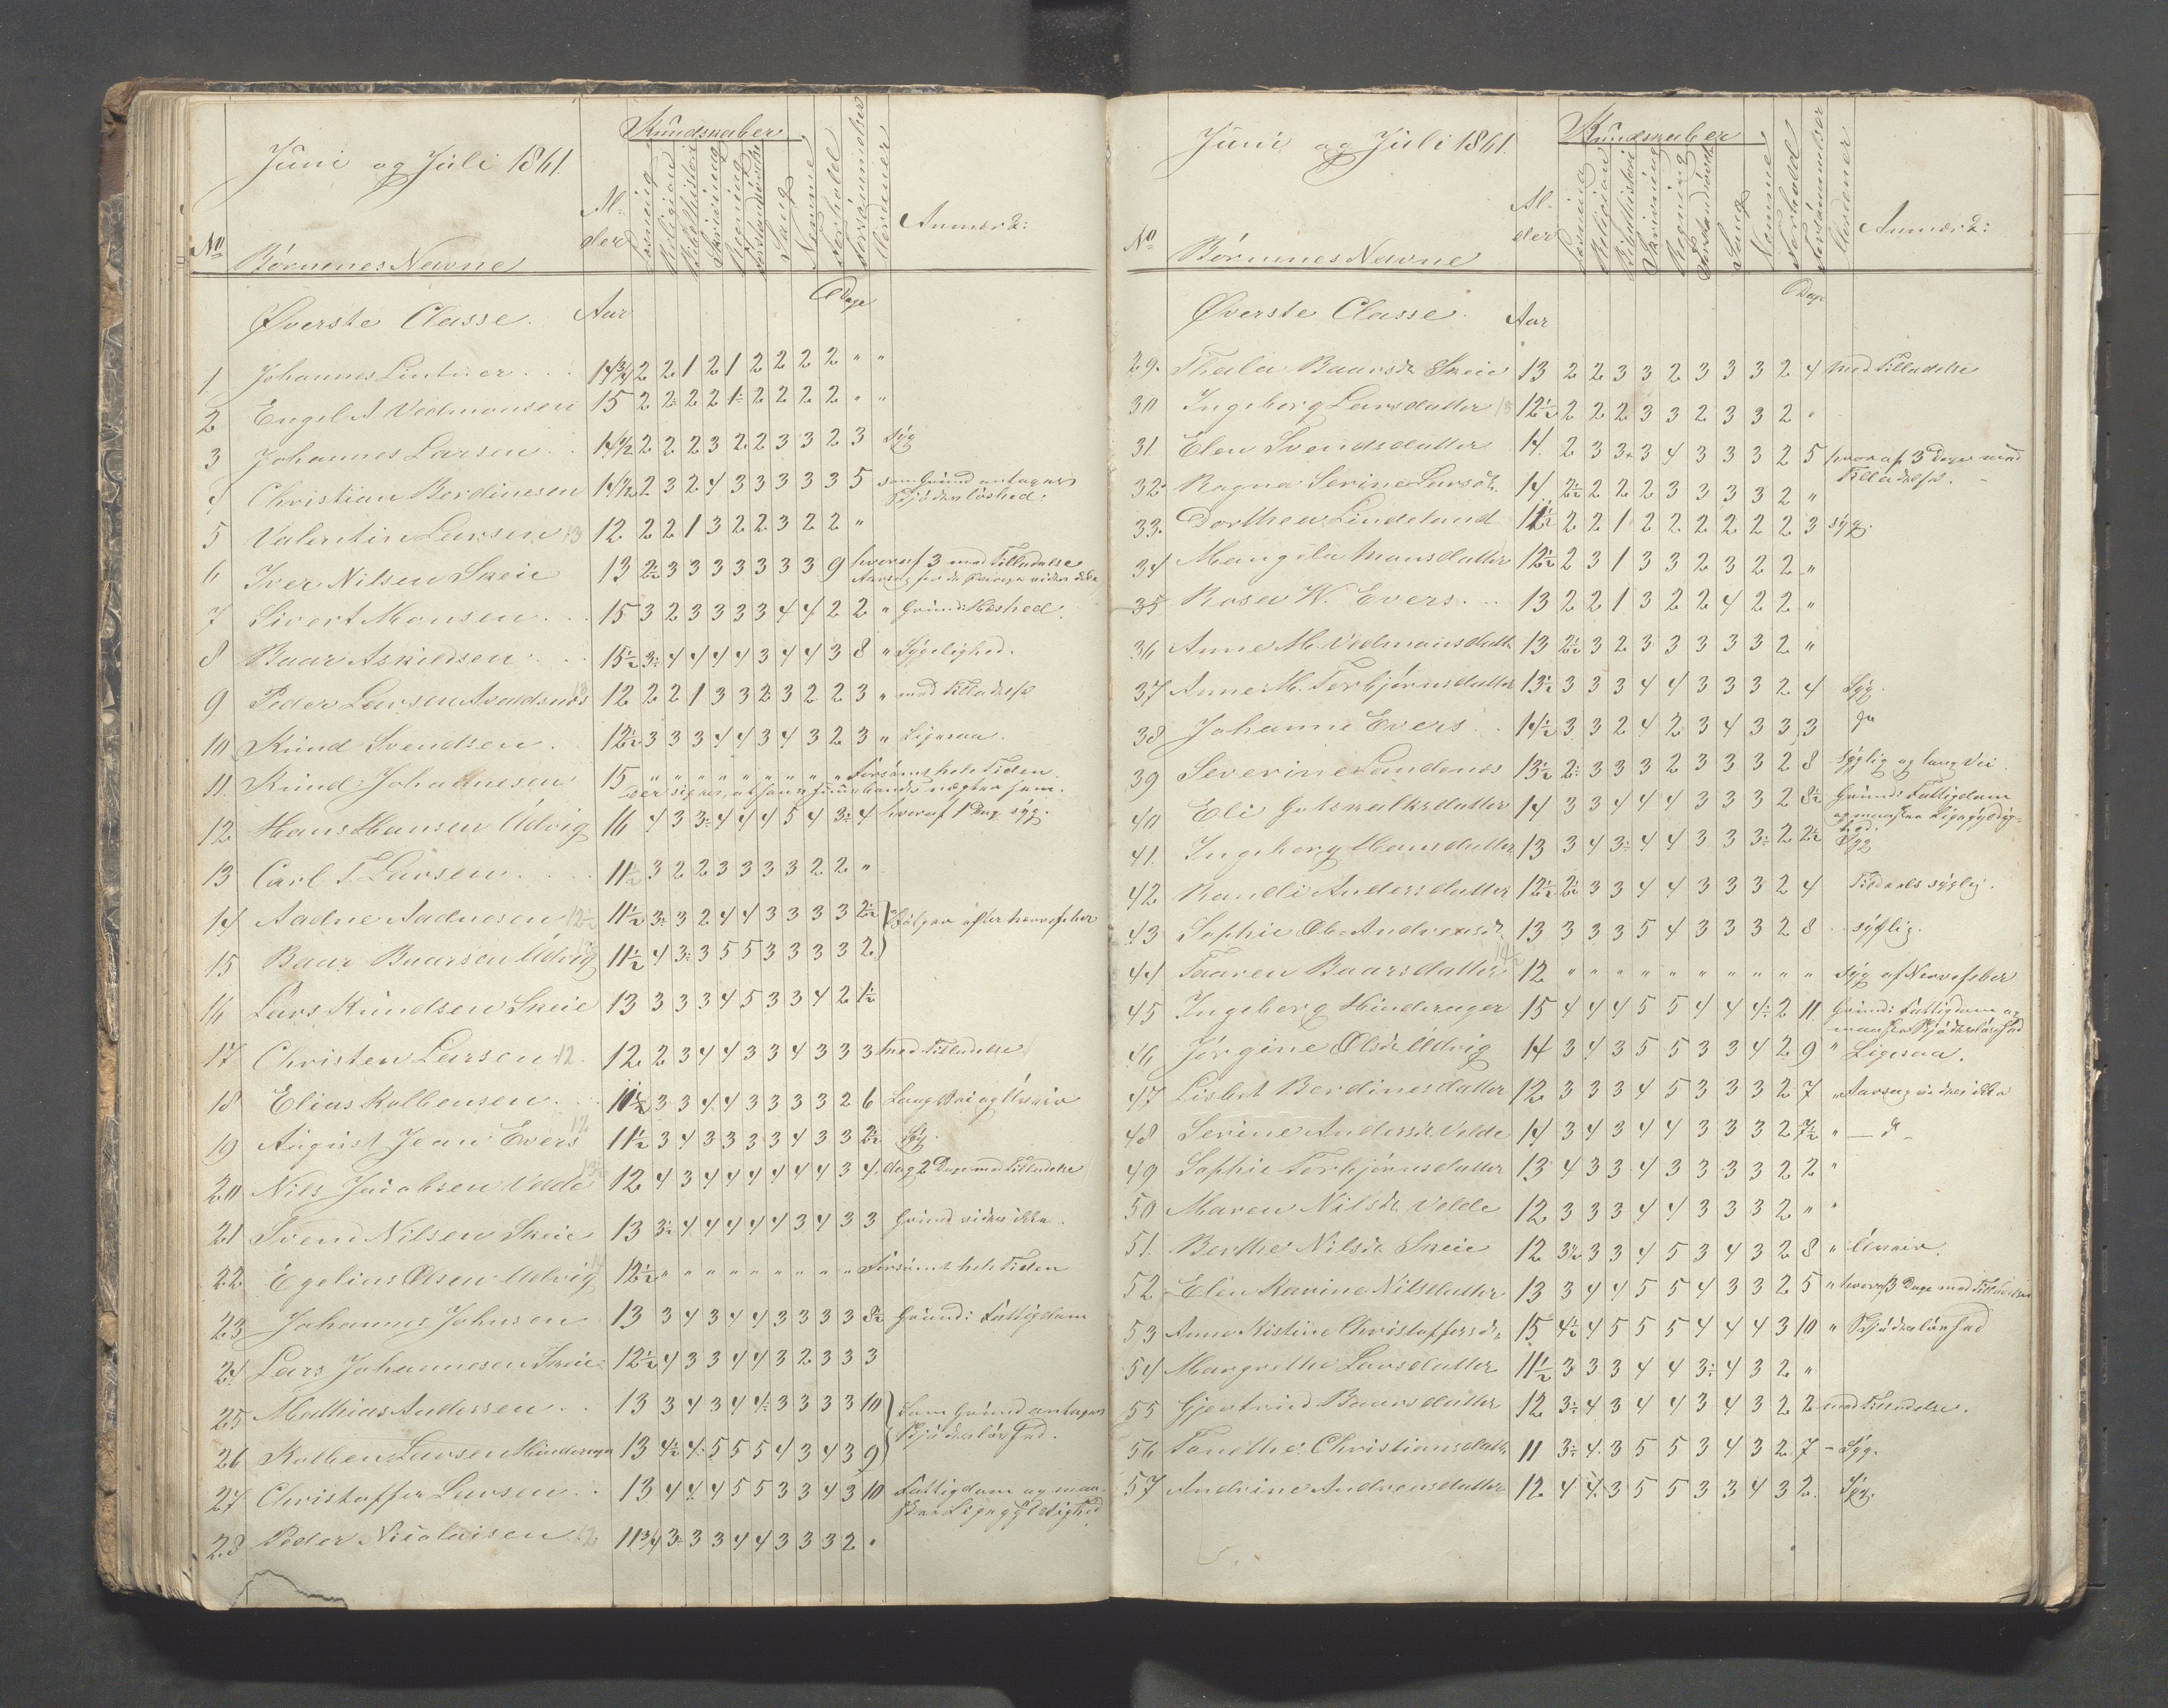 Juni og Juli 1861.
Kundskaber
No Børnenes Navne Alder Læsning Religion Bibelhistorie Skrivning Regning Forstandsøvelse Sang Nemme Forhold Forsømmelser Anmærk:
Øverste Classe. Aar Dage
1 Johannes Lintner 14 3/4 2 2 1 2 1 2 2 2 2 " "
2 Engel A Vedmonsen 15 2 2: 2 2 1: 2 2 2 2 " "
3 Johannes Larsen 14 1/2 2 2 2 3 2 2 3 3 2 3 syg
4 Christian Berdinesen 14 1/2 2 3 2 4 3 3 3 3 3 5 som Grund antages
Skjødesløshed.
5 Valentin Larsen 13 12 2 2 1 3 2 2 3 2 2 "
6 Iver Nilsen Skeie 13 2 1/2 3 3 3 3 3 3 3 3 9 hvoraf 3 med Tilladelse
7 Sivert Monsen 15 3 2 3 3 3 3 4 4 2 2 " Grund:
8 Baar Askildsen 15 1/2 3: 4 4 4 4 3 4 4 3 8 " Sygelighed.
9 Peder Larsen Avaldsnes 12 2 2 1 3 3 2 3 2 2 3 " med Tilladelse
10 Knud Svendsen 12 1/2 3 3 3 4 4 3 4 3 2 3 " Ligesaa.
11 Knud Johannesen 15 " " " " " " " " " Forsømt hele Tiden
12 Hans Hansen Udvig 16 4 3 3: 4 4 4 5 4 3: 4 hvoraf 1 Dag syg.
13 Carl T. Larsen 11 1/2 3 2 2 3 3 3 3 2 2 "
14 Aadne Aadnesen 12 1/2 11 1/2 3: 3 2 4 4 3 3 3 3 2 1/2 Følger efter Nervefeber
15 Baar Baarsen Udvig 11 1/2 4 3: 3 5 5 3 3 3 3 2
16 Lars Knudsen Skeie 13 3 3 3 4 5 3 3 4 2 1 1/2
17 Christen Larsen 12 12 2 3 4 4 3 3 4 3 3 3 med Tilladelse
18 Elias Kolbensen 11 1/2 3 3 4 4 3 3 3 3 2 6 Lang Vei og Uveir
19 August Jean Evers 11 1/2 3 4 3 3 3 3 4 3 3 2 1/2 Syg.
20 Nils Jacobsen Velde 12 4 3 4 4 4 4 4 4 3 4 dog 2 Dage med Tilladelse
21 Svend Nilsen Skeie 13 3: 4 4 4 4 4 3 4 3 3 Grund vides ikke.
22 Egelius Olsen Udvig 12 1/2 " " " " " " " " " Forsømt hele Tiden
23 Johannes Johnsen 13 3 4 3 4 4 3 3 3 3 8 1/2 Grund: Fattigdom
24 Lars Johannesen Skeie 12 1/2 4 3 3 4 4 3 2 3 3 3
25 Mathias Andersen 13 3 4 3 4 4: 3 3 3 3 10 Som Grund antages
Skjødesløshed.
26 Kolben Larsen Hinderager 13 4 1/2 4: 5 5 5 4 3 4 3 9
27 Christoffer Larsen 13 4 4 4 5 5 3 3 4 3 10 Fattigdom og maa-
skee Ligegyldighed
28 Peder Nicolaisen 12 11 3/4 3: 3 3 4 4 3 3 3 2 "
Juni og Juli 1861.
Kundskaber
No Børnenes Navne Alder Læsning Religion Bibelhistorie Skrivning Regning Forstandsøvelse Sang Nemme Forhold Forsømmelser Anmærk:
Øverste Classe. Aar Dage
29. Thala Baarsdr Skeie 13 2 2 3 3 2 3 3 3 2 4 med Tilladelse
30 Ingeborg Larsdatter 13 12 1/2 2 2 2 3 3 2 3 3 2 "
31. Elen Svendsdatter 14 2 3 3 3 4 3 3 3 2 5 hvoraf 3 Dage med
Tilladelse.
32. Ragna Serine Larsdr. 14 2 1/2 2 2 2 3 3 3 3 2 "
33. Dorthea Lindeland 11 1/2 2 2 1 2 2 2 2 2 2 3 syg.
34 Mangela Monsdatter 12 1/2 2 3 1 3 3 2 3 2 2 "
35 Rosa W. Evers 13 2 2 1 3 2 2 4 2 2 "
36 Anne M. Vedmonsdatt. 13 2 1/2 3 2 3 3 3 3 3 2 "
37 Anne M. Torbjørnsdatter 13 1/2 3 3 3 4 4 3 3 3 2 4 Syg.
38 Johanne Evers 14 1/2 3 3 2 4 2 3 4 3 3 3 do
39 Severine Sandenes 13 1/2 2: 3 3 3 2 3 3 3 2 8 Syglig og lang Vei
40 Eli Gotskalksdatter 14 3 3 4 4 4 3 3 3 2 8 1/2 Grund: Fattigdom
og maaskee Ligegyldig-
hed.
41. Ingeborg Hansdatter 13 3 4 3: 4 4 3 3 3: 2 2 1/2 Syg
42 Randi Andersdatter 12 1/2 2 1/2 3 3 4 4 3 3 3 2 4 Tildeels syglig.
43 Sophie O. Andreasdr. 13 3 3 3 5 4 3 3 3 2 8 syglig.
44 Taaren Baarsdatter 14 1/2 12 " " " " " " " " " " Syg af Nervefeber
45 Ingeborg Hinderager 15 4 4 4 5 5 4 4 4: 2 11 Grund: Fattigdom og
maaskee Skjødesløshed
46 Jørgine Olsdr Udvig 14 3 4 3 5 5 3 3 4 2 9 " Ligesaa.
47 Lisbet Berdinesdatter 12 3 3 3 4 5 3 3 3 2 7 " Aarsag vides ikke
48 Serine Andersdr Velde 14 3 4 3 4 4 3 3 3 2 7 1/2 " — do —
49 Sophie Torbjørnsdatter 13 4 3 3 4 3 3 3 3 2 2 "
50 Maren Nilsdr. Velde 12 3 3 3 4 4 3 3 3 2 " "
51. Berthe Nilsdr. Skeie 12 3 1/2 3 3 4 5 3 4 3 2 8 " Uveir.
52 Elen Karine Nilsdatter 13 3 4 4 5 5 4 3 3 2 5 " hvoraf 3 Dage med Tilladelse
53 Anne Kistine Christoffersdr. 15 4 1/2 4 5 5 5 4 4 4 3 10 " Skjødesløshed
54 Margrethe Larsdatter 11 1/2 3 3 3 4 4 3: 4 3 2 "
55 Gjertrud Baarsdatter 12 3: 4 3 4 4 3 4 3 2 2 med Tilladelse.
56 Tonethe Christiansdatt. 11 3: 4: 3 5 5 3 4 3 2 7 - Syg.
57 Andrine Andreasdatter 12 4 4: 3 5 5 3 3 4 3 2. Syg.